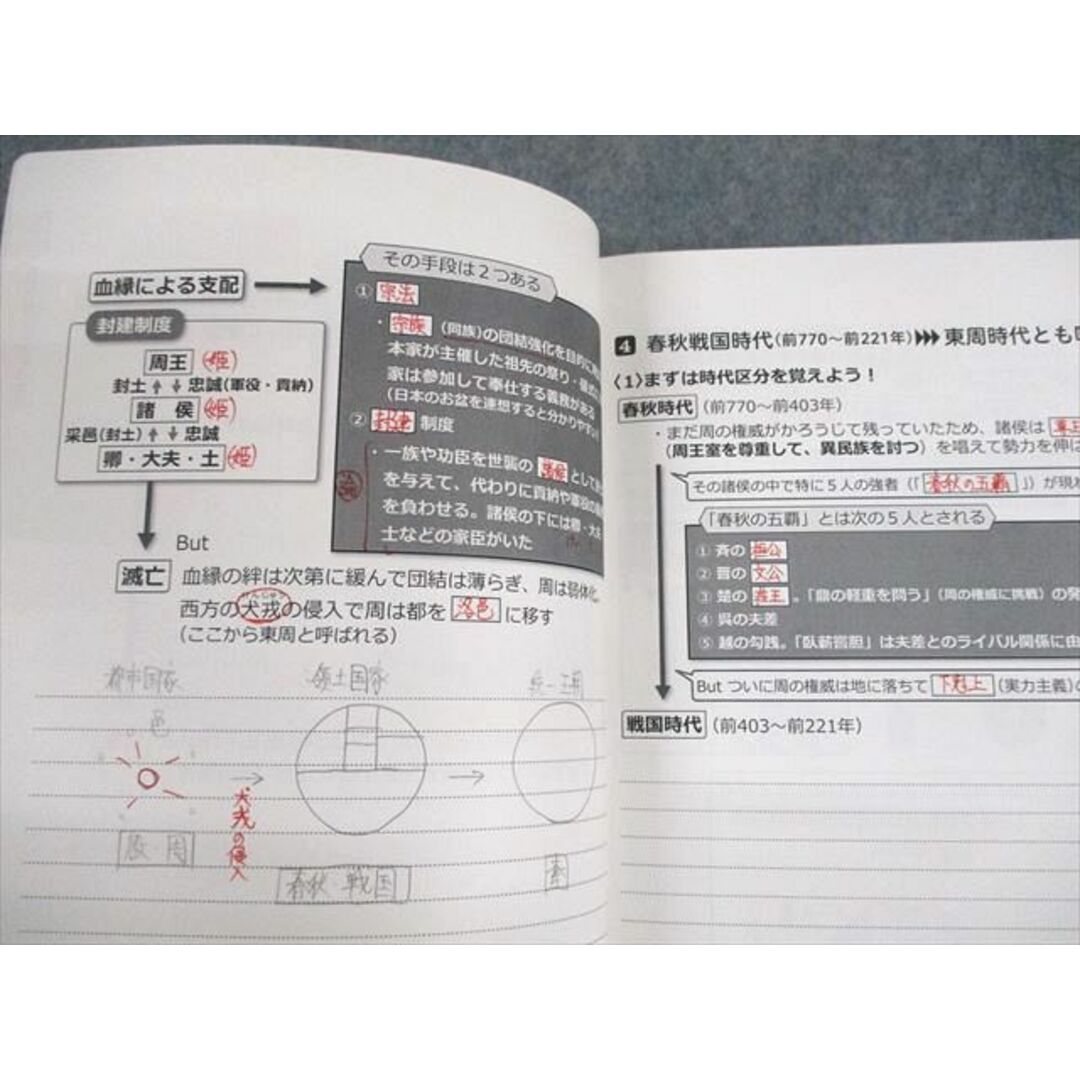 血縁による支配
封建制度
周王 姫
封土 忠誠(軍役・貢納)
諸 侯 姫
采邑(封土) 忠誠
卿・大夫・士 姫
But
滅亡 血縁の絆は次第に緩んで団結は薄らぎ、周は弱体化。
西方の犬戎の侵入で周は都を 洛邑 に移す
けんじゅう
(ここから東周と呼ばれる)
その手段は2つある
① 宗法
・宗族(同族)の団結強化を目的に
本家が主催した祖先の祭り・儀式
家は参加して奉仕する義務がある
(日本のお盆を連想すると分かりやすい
② 封建 制度
・一族や功臣を世襲の 諸侯 として
を与えて、代わりに貢納や軍役の
を負わせる。諸侯の下には卿・大夫
士などの家臣がいた
都市国家 領土国家 統一王朝
邑
犬戎の侵入
殷・周
春秋・戦国
秦
4 春秋戦国時代(前770～前221年) 東周時代とも
〈1〉まずは時代区分を覚えよう！
春秋時代 (前770～前403年)
・まだ周の権威がかろうじて残っていたため、諸侯は 尊王
(周王室を尊重して、異民族を討つ)を唱えて勢力を伸ば
その諸侯の中で特に5人の強者(「春秋の五覇」)が現れ
「春秋の五覇」とは次の5人とされる
① 斉の 桓公
② 晋の 文公
③ 楚の 荘王。「鼎の軽重を問う」(周の権威に挑戦)の発
④ 呉の夫差
⑤ 越の勾践。「臥薪嘗胆」は夫差とのライバル関係に由
But ついに周の権威は地に落ちて 下剋上 (実力主義)の
戦国時代 (前403～前221年)